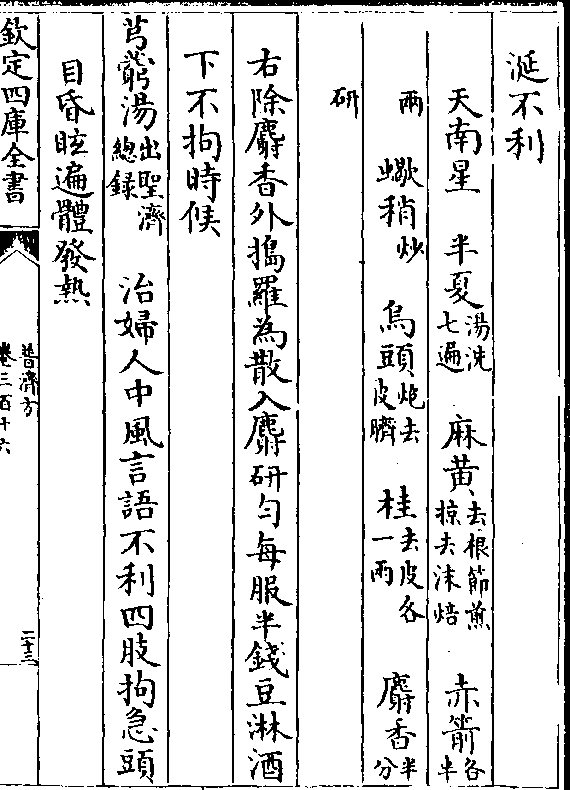 涎不利
天南星 半夏湯洗七遍 麻黄去根節煎掠去沫焙 赤箭各半
兩 蠍稍炒 烏頭炮去皮臍 桂去皮各一兩 麝香半分
研
右除麝香外搗羅為散入麝研勻每服半錢豆淋酒
下不拘時候
芎藭湯出聖濟總録 治婦人中風言語不利四肢拘急頭
目昏眩遍體發熱
欽定四庫全書
普濟方
卷三百十六
二十三